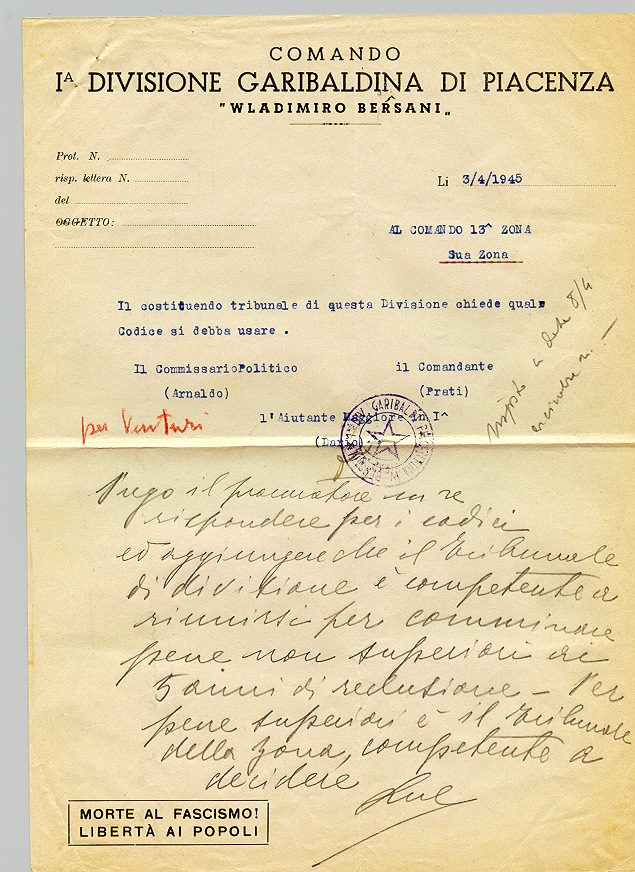 COMANDO
Iᴬ DIVISIONE GARIBALDINA DI PIACENZA
"WLADIMIRO BERSANI„
Prot. N.
risp. lettera N.
del
OGGETTO:
Li 3/4/1945
AL COMANDO 13^ ZONA
Sua Zona
Il costituendo tribunale di questa Divisione chiede quale
Codice si debba usare .
Il CommissarioPolitico
(Arnaldo)
il Comandante
(Prati)
l'Aiutante Maggiore in I^
(Dario)
per Venturi
risposto a data 8/4
Prego il procuratore
rispondere per i codici
ed aggiungere che il Tribunale
di divisione è competente a
riunirsi per comminare
pene non superiori ai
5 anni di reclusione - Per
pene superiori è il Tribunale
della zona, competente a
decidere
MORTE AL FASCISMO!
LIBERTÀ AI POPOLI